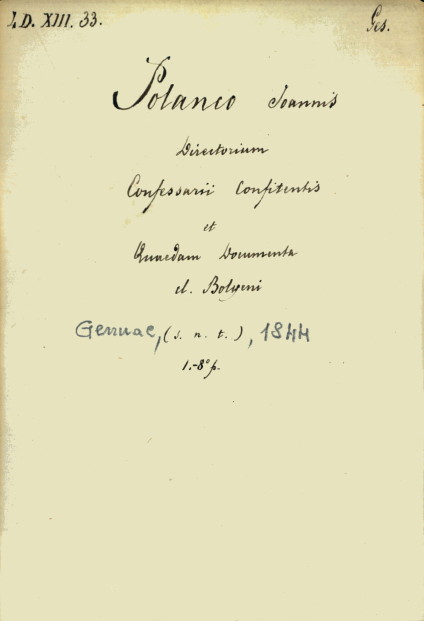 LD. XIII. 33.
Ges.
Polanco Joannis
Directorium
Confessarii Confitentis
et
Quaedam Documenta
cl. Bolgeni
Genuae, (s. n. t.), 1844
1.-8° p.